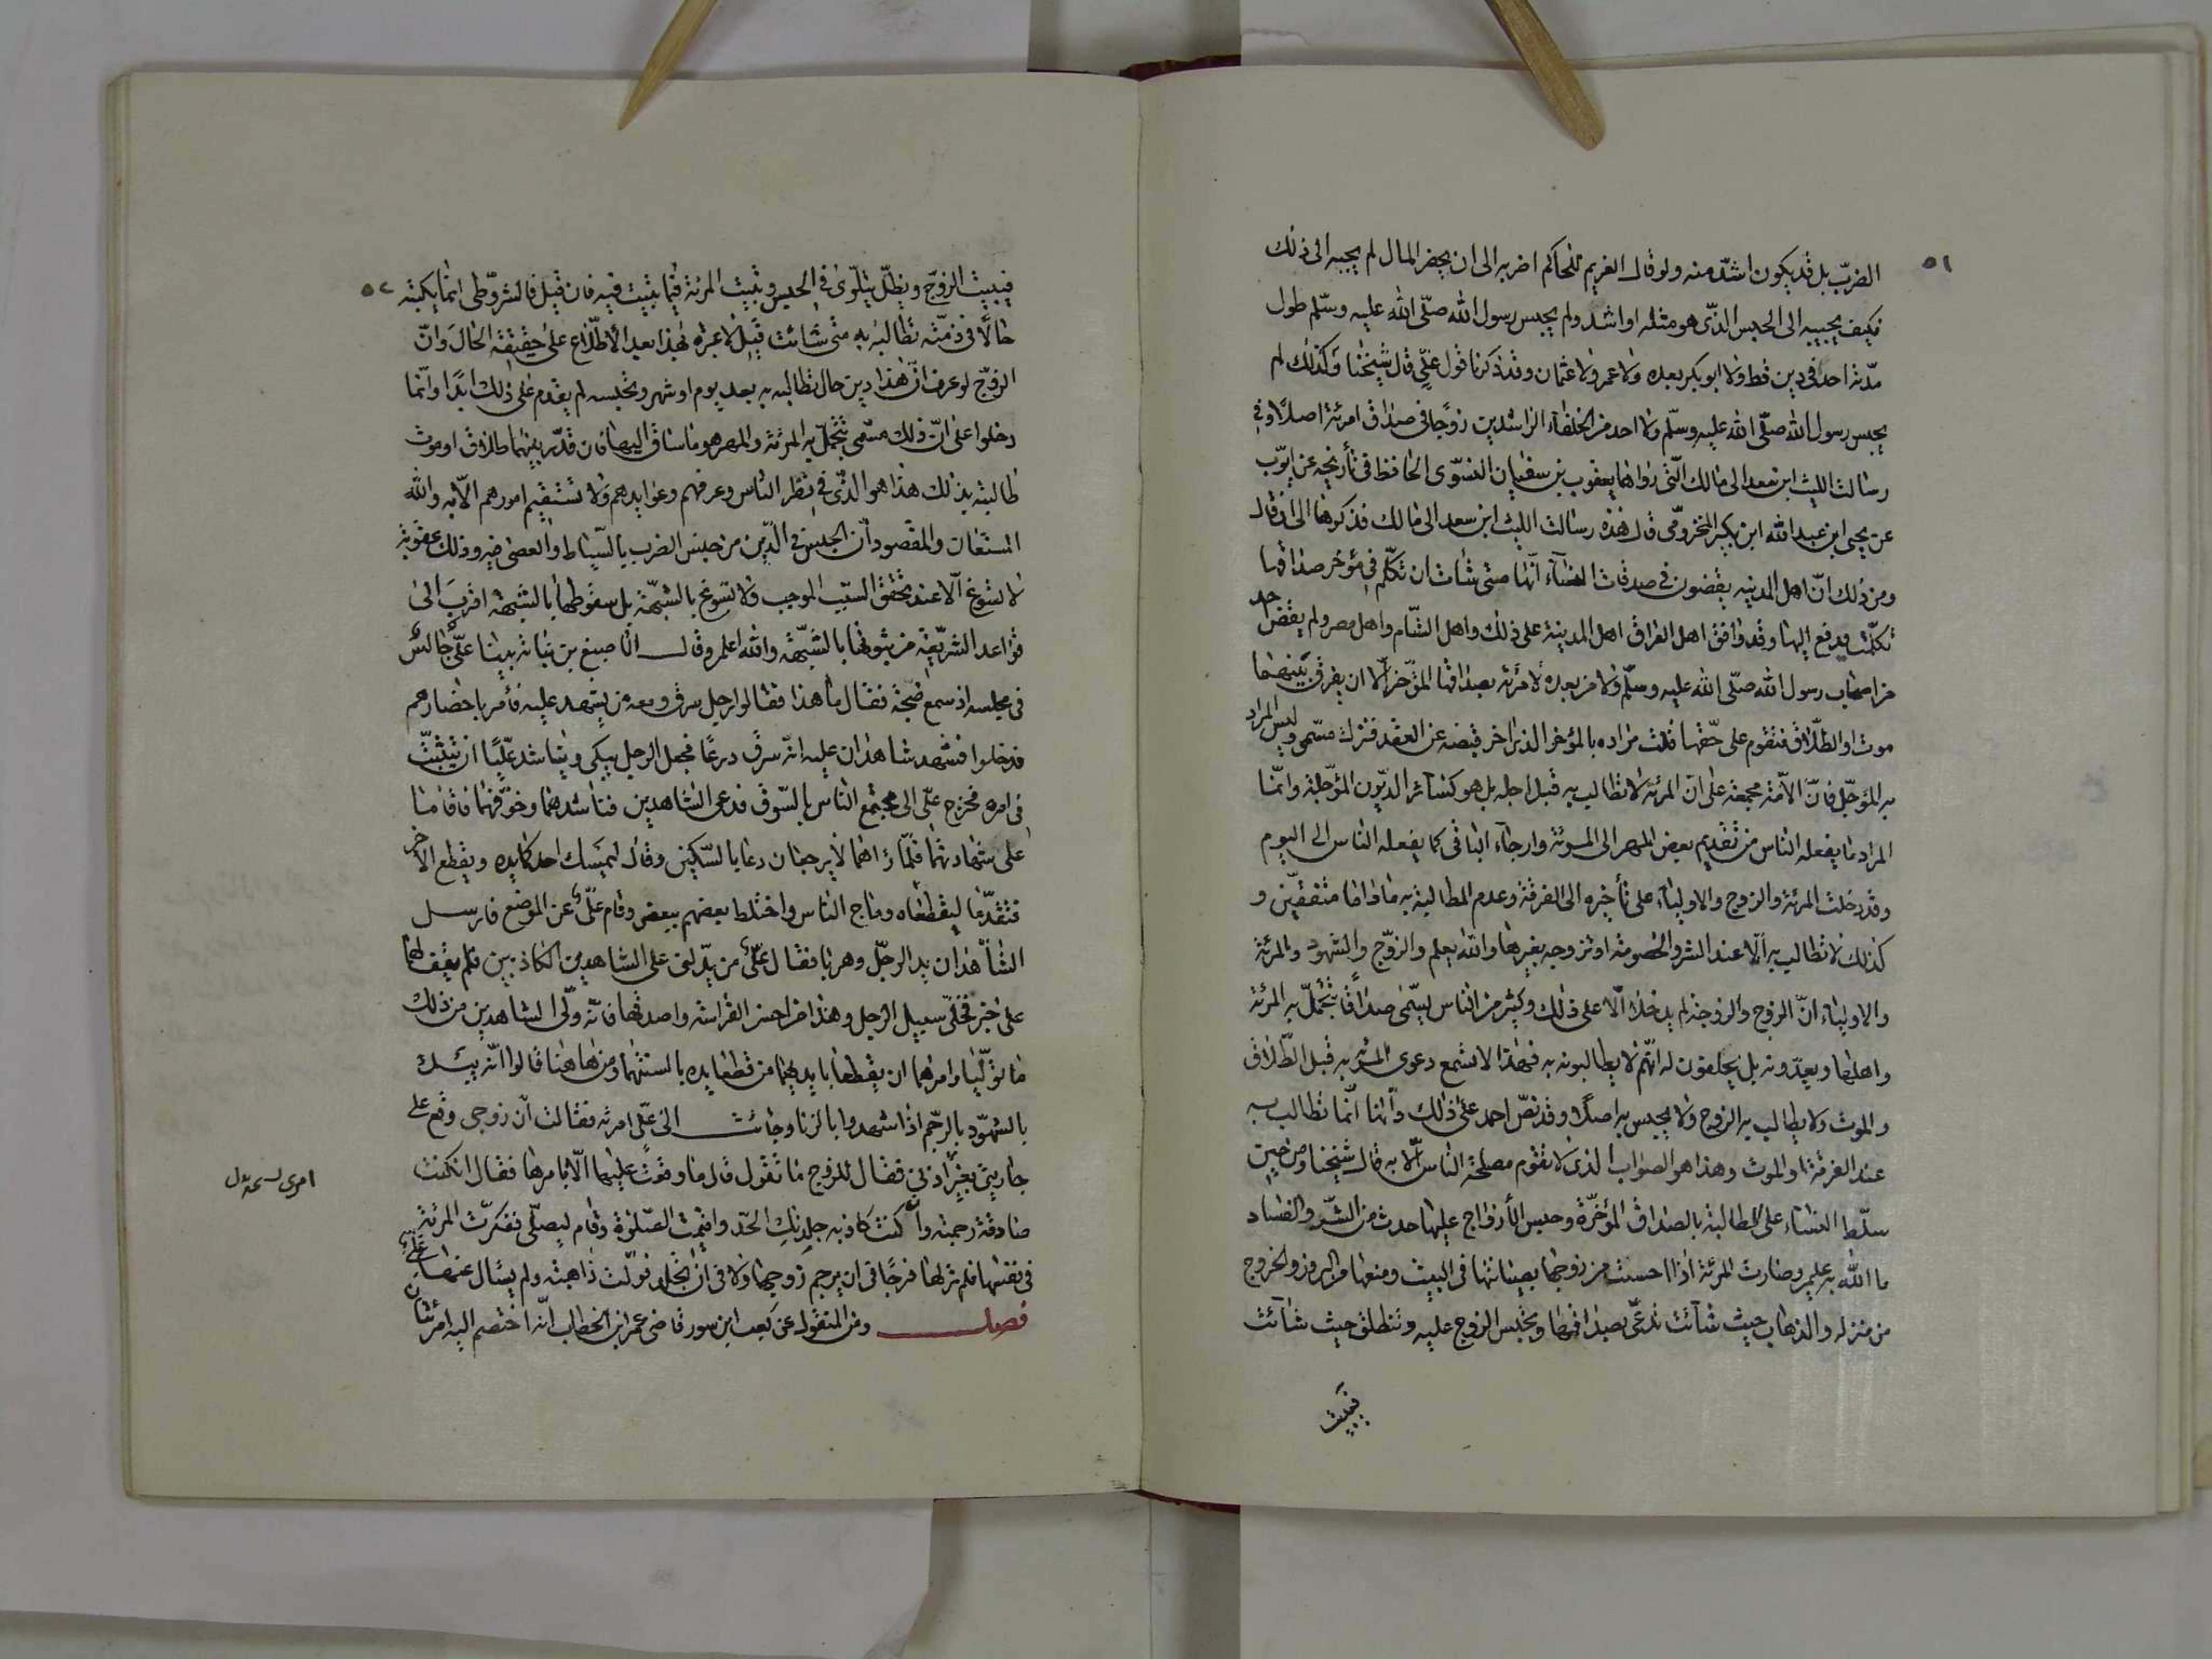 ٥١
الضرب بل قد يكون اشدّ منه ولو قال الغريم للحاكم اضربه الى ان يحضر المال لم يجبه الى ذلك
فكيف يجيبه الى الحبس الذى هو مثله او اشد ولم يحبس رسول الله صلّى الله عليه وسلّم طول
مدّته احدا فى دين قط ولا ابو بكر بعده ولا عمر ولا عثمان وقد ذكرنا قول علىّ قال شيخنا وكذلك لم
يحبس رسول الله صلّى الله عليه وسلّم ولا احد من الخلفآء الراشدين زوجًا فى صداق امرئة اصلاً وفى
رسالت الليث ابن سعد الى مالك الّتى رواها يعقوب بن سفيان الفسوى الحافظ فى تأريخه عن ايوّب
عن يحيى ابن عبد الله ابن بكير المخزومى قال هذه رسالت الليث ابن سعد الى مالك فذكرها الى ان قال
ومن ذلك انّ اهل المدينه يقضون فى صدقات النسآء انّها متى شاءت ان تكلّم فى مؤخر صداقها
تكلّمت فيدفع اليها وقد وافق اهل العراق اهل المدينة على ذلك واهل الشّام واهل مصر ولم يقض احد
من اصحاب رسول الله صلّى الله عليه وسلّم ولا من بعده لامرئة بصداقها المؤخّر الّا ان يفرق بينهما
موت او الطلّاق فتقوم على حقّها قلت مراده بالمؤخر الذى اخر قبضه عن العقد فترك مسمّى وليس المراد
به المؤجّل فانّ الامّة مجمعة على انّ المرئة لا تطالب به قبل اجله بل هو كسائر الديّون المؤجّلة وانّما
المراد ما يفعله الناس من تقديم بعض المهر الى المرئة وارجآء الباقى كما يفعله الناس الى اليوم
وقد دخلت المرئة والزوج والاوليآء على تأخيره الى الفرقة وعدم المطالبة به ما داما متفقيّن و
كذلك لا تطالب به الّا عند الشر والخصومة او تزوجه بغيرها والله يعلم والزوّج والشهود والمرئة
والاوليآء انّ الزوج والزوجة لم يدخلا الّا على ذلك وكثير من الناس يسمّى صداقًا تتجمّل به المرئة
واهلها ويعدّونه بل يحلفون له انّهم لا يطالبونه به فهذا لا تسمع دعوى المرئة به قبل الطّلاق
والموت ولا يطالب به الزوج ولا يحبس به اصلا وقد نصّ احمد على ذلك وانّها انّما تطالب به
عند الفرقة والموت وهذا هو الصواب الذى لا تقوم مصلحة الناس الّا به قال شيخنا ومن حين
سلّط النسآء على المطالبة بالصداق المؤخّرة وحبس الأزواج عليها حدث من الشّر والفساد
ما الله به عليم وصارت المرئة اذا احست من زوجها بصيانتها فى البيت ومنعها من البروز والخروج
من منزله والذهاب حيث شآئت تدعّى بصداقها وتحبس الزوج عليه وتنطلق حيث شآئت
فيبيت
٥٢
فيبيت الزوّج ويظلّ يتلوّى فى الحبس وتبيت المرئة فيما تبيت فيه فان قيل فالشروّطى انّما يكتبه
حالًّا فى ذمّته تطالبه به متى شائت قيل لا عبرة بهذا بعد الأطلّاع على حقيقة الحال وانّ
الزوّج لو عرف انّ هذا دين حال تطالبه به بعد يوم او شهر وتحبسه لم يقدم على ذلك ابدًا وانّما
دخلوا على انّ ذلك مسّمى تتجمّل به المرئة والمهر هو ما ساق اليها فان قدّر بينهما طلاق او موت
طالبته بذلك هذا هو الذّى فى نظر الناس وعرفهم وعوايدهم ولا تستقيم امورهم الّا به والله
المستعان والمقصود انّ الحبس فى الدّين من جنس الضرب بالسّياط والعصى فيه وذلك عقوبة
لا تسوغ الّا عند تحقق السّبب الموجب ولا تسوغ بالشّبهة بل سقوطها بالشبهة اقرب الى
قواعد الشريعة من ثبوتها بالشبّهة والله اعلم وقال الاصبغ بن نباته بينا علىّ جالس
فى مجلسه اذ سمع ضجة فقال ما هذا فقالوا رجل سرق ومعه من يشهد عليه فأمر باحضارهم
فدخلوا فشهد شاهدان عليه انّه سرق درعًا فجعل الرجل يبكى ويناشد عليًّا ان يتثبّت
فى امره فخرج علىّ الى مجتمع الناس بالسّوق فدعى الشاهدين فناشدهما وخوّفهما فاقاما
على شهادتهما فلمّا رآهما لا يرجعان دعا بالسّكين وقال ليمسك احدكما يده ويقطع الآخر
فتقدّما ليقطعاه وماج الناس واختلط بعضهم ببعض وقام علىّ عن الموضع فارسل
الشاهدان يد الرجلّ وهربا فقال علىّ من يدّلنى على الشاهدين الكاذبين فلم يقف لهما
على خبر فخلّى سبيل الرجل وهذا من احسن الفراسة واصدقها فانّه ولّى الشاهدين من ذلك
ما تولّيا وامرهما ان يقطعا بايديهما من قطعا يده بالسنتهما ومن هاهنا قالوا انّه يبدأ
بالشهوّد بالرجّم اذا شهدوا بالزنا وجائت الى علىّ امرئة فقالت انّ زوجى وقع على
جاريتى بغير اذنى فقال للزوج ما تقول قال ما وقعت عليها الّا بامرها فقال ان كنت
صادقة رجمته وان كنت كاذبه جلدتك الحدّ واقيمت الصّلوة وقام ليصلّى ففكرّت المرئة
فى نفسها فلم تر لها فرجًا فى ان يرجم زوجها ولا فى ان تجلد فولّت ذاهبة ولم يسئال عنها علىّ
فصل ومن المنقول عن كعب ابن سور قاضى عمر ابن الخطاب انّه اختصم اليه امرئتان